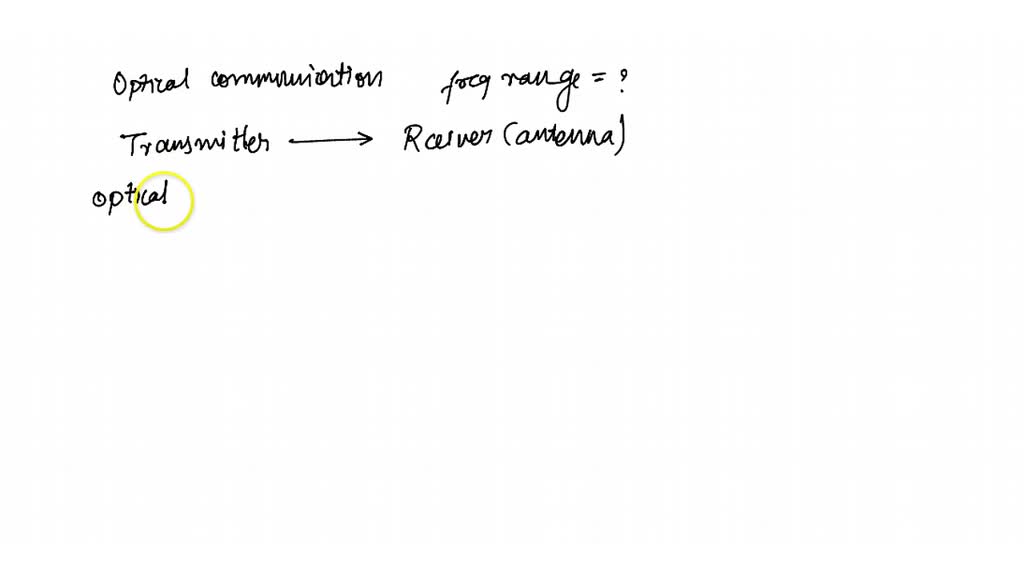 Optical communication freq range = ?
Transmitter → Receiver (antenna)
optical